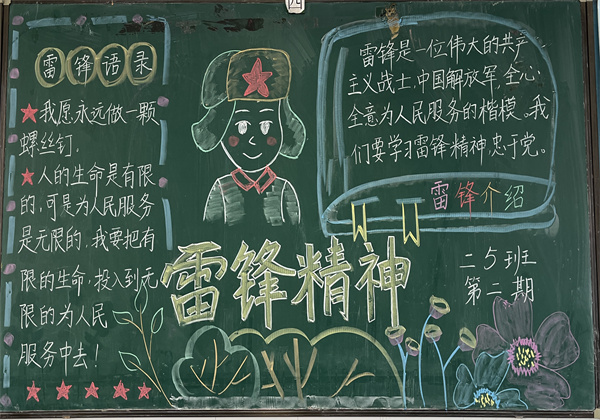 雷锋语录
★我愿永远做一颗
螺丝钉.
★人的生命是有限
的,可是为人民服务
是无限的.我要把有
限的生命,投入到无
限的为人民
服务中去!
雷锋是一位伟大的共产
主义战士,中国解放军,全心
全意为人民服务的楷模。我
们要学习雷锋精神,忠于党。
雷锋介绍
雷锋精神
二5班
第二期